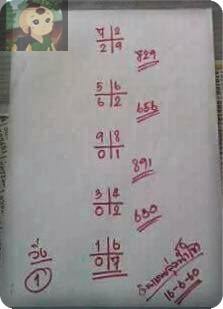 7 2
2 9
829
5 6
6 2
656
9 8
0 1
891
3 4
0 2
630
1 6
0 7
วิ่ง
1
16-6-60